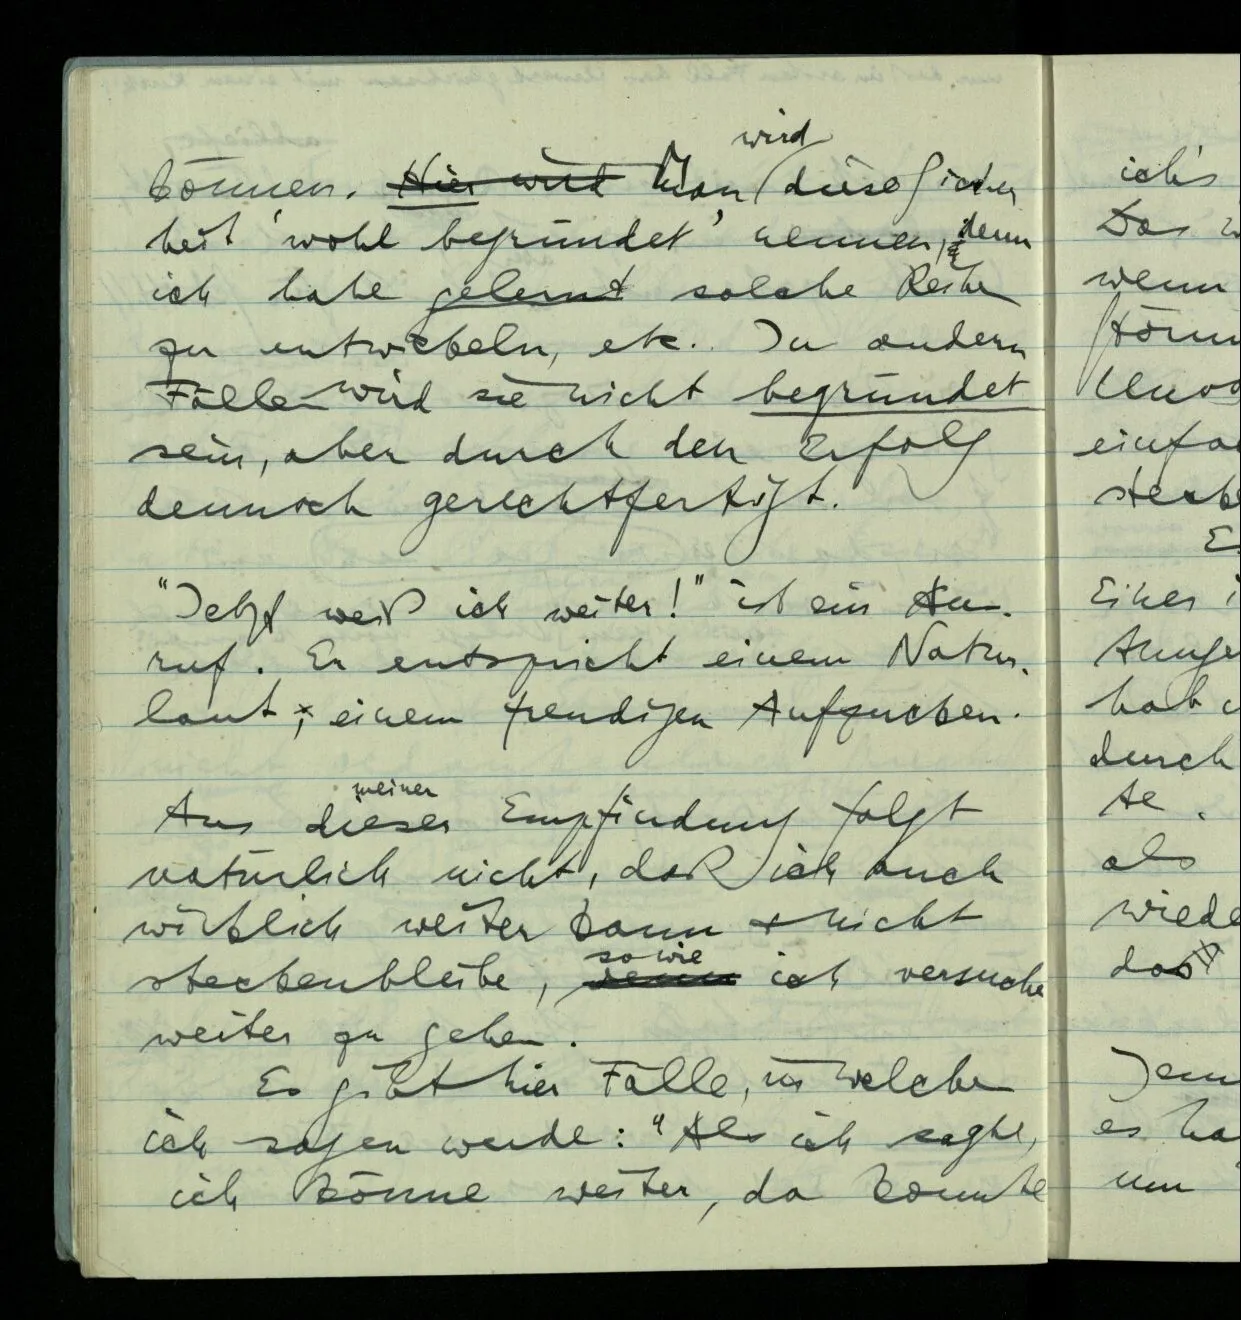 wird
können. Hier wird Man diese Sicher
heit 'wohl begründet' nennen, denn
ich habe gelernt solche Reihen
zu entwickeln, etc.. In andern
Fällen wird sie nicht begründet
sein, aber durch den Erfolg
dennoch gerechtfertigt.
"Jetzt weiß ich weiter!" ist ein Aus-
ruf. Er entspricht einem Natur-
laut, einem freudigen Aufzucken.
meiner
Aus dieser Empfindung folgt
natürlich nicht, daß ich auch
wirklich weiter kann & nicht
steckenbleibe,
sowie
wenn ich versuche
weiter zu gehen.
Es gibt hier Fälle, in welchen
ich sagen werde: "Als ich sagte,
ich könne weiter, da konnte
ich's
Das
wenn
einfa
steck
Es
Eines i
hab
durch
te.
als
wiede
das
es ha
um